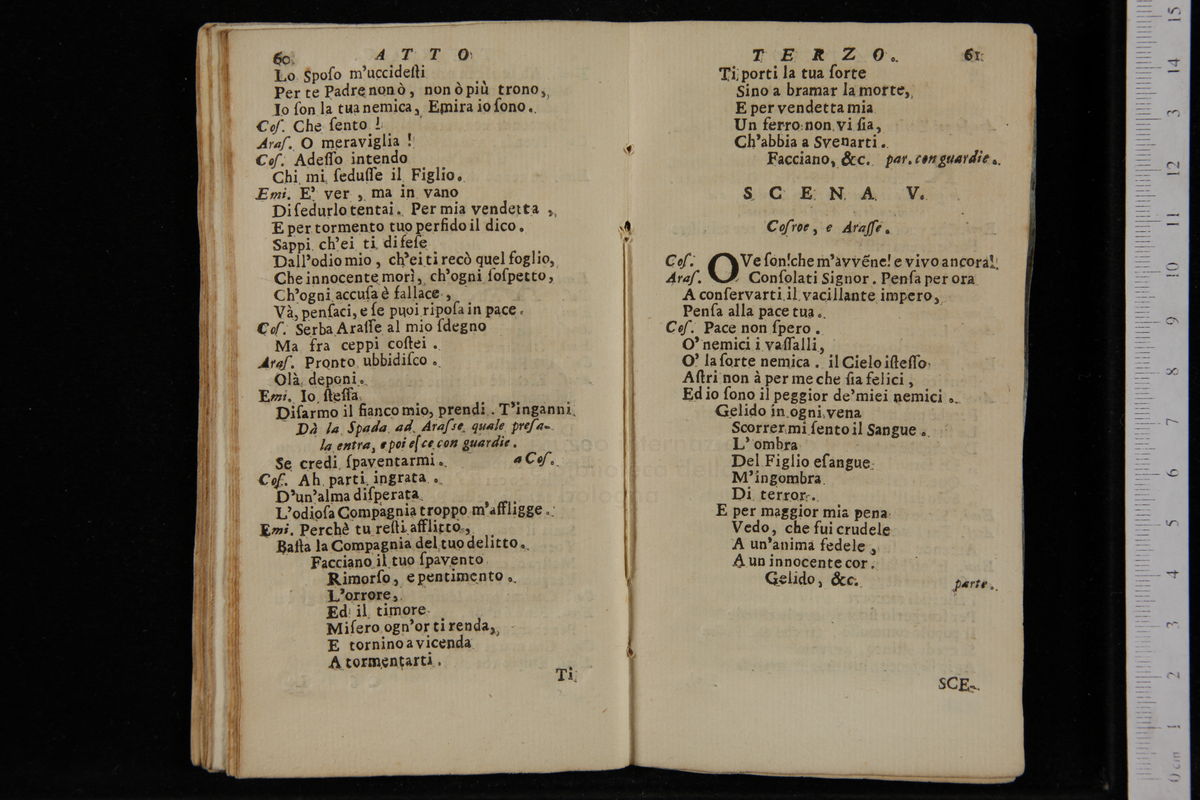 60. ATTO
Lo Spoſo m'uccideſti
Per te Padre non ò, non ò più trono,
Io ſon la tua nemica, Emira io ſono.
Coſ. Che ſento !
Araſ. O meraviglia !
Coſ. Adeſſo intendo
Chi mi ſeduſſe il Figlio.
Emi. E' ver, ma in vano
Di ſedurlo tentai. Per mia vendetta,
E per tormento tuo perfido il dico.
Sappi ch'ei ti difeſe
Dall'odio mio, ch'ei ti recò quel foglio,
Che innocente morì, ch'ogni ſoſpetto,
Ch'ogni accuſa è fallace,
Và, penſaci, e ſe puoi ripoſa in pace.
Coſ. Serba Araſſe al mio ſdegno
Ma fra ceppi coſtei.
Araſ. Pronto ubbidiſco.
Olà deponi.
Emi. Io ſteſſa
Diſarmo il fianco mio, prendi. T'inganni
Dà la Spada ad Araſse quale preſa-
la entra, e poi eſce con guardie.
Se credi ſpaventarmi. a Coſ.
Coſ. Ah parti ingrata.
D'un'alma diſperata
L'odioſa Compagnia troppo m'affligge.
Emi. Perchè tu reſti afflitto,
Baſta la Compagnia del tuo delitto.
Facciano il tuo ſpavento
Rimorſo, e pentimento.
L'orrore,
Ed il timore
Miſero ogn'or ti renda,
E tornino a vicenda
A tormentarti.
Ti
TERZO. 61
Ti porti la tua ſorte
Sino a bramar la morte,
E per vendetta mia
Un ferro non vi ſia,
Ch'abbia a Svenarti.
Facciano, &c. par. con guardie.
SCENA V.
Coſroe, e Araſſe.
Coſ. OVe ſon! che m'avvẽne! e vivo ancora!
Araſ. Conſolati Signor. Penſa per ora
A conſervarti il vacillante impero,
Penſa alla pace tua.
Coſ. Pace non ſpero.
O' nemici i vaſſalli,
O' la ſorte nemica. il Cielo iſteſſo
Aſtri non à per me che ſia felici,
Ed io ſono il peggior de' miei nemici.
Gelido in ogni vena
Scorrer mi ſento il Sangue.
L' ombra
Del Figlio eſangue
M'ingombra
Di terror.
E per maggior mia pena
Vedo, che fui crudele
A un'anima fedele,
A un innocente cor.
Gelido, &c. parte.
SCE-